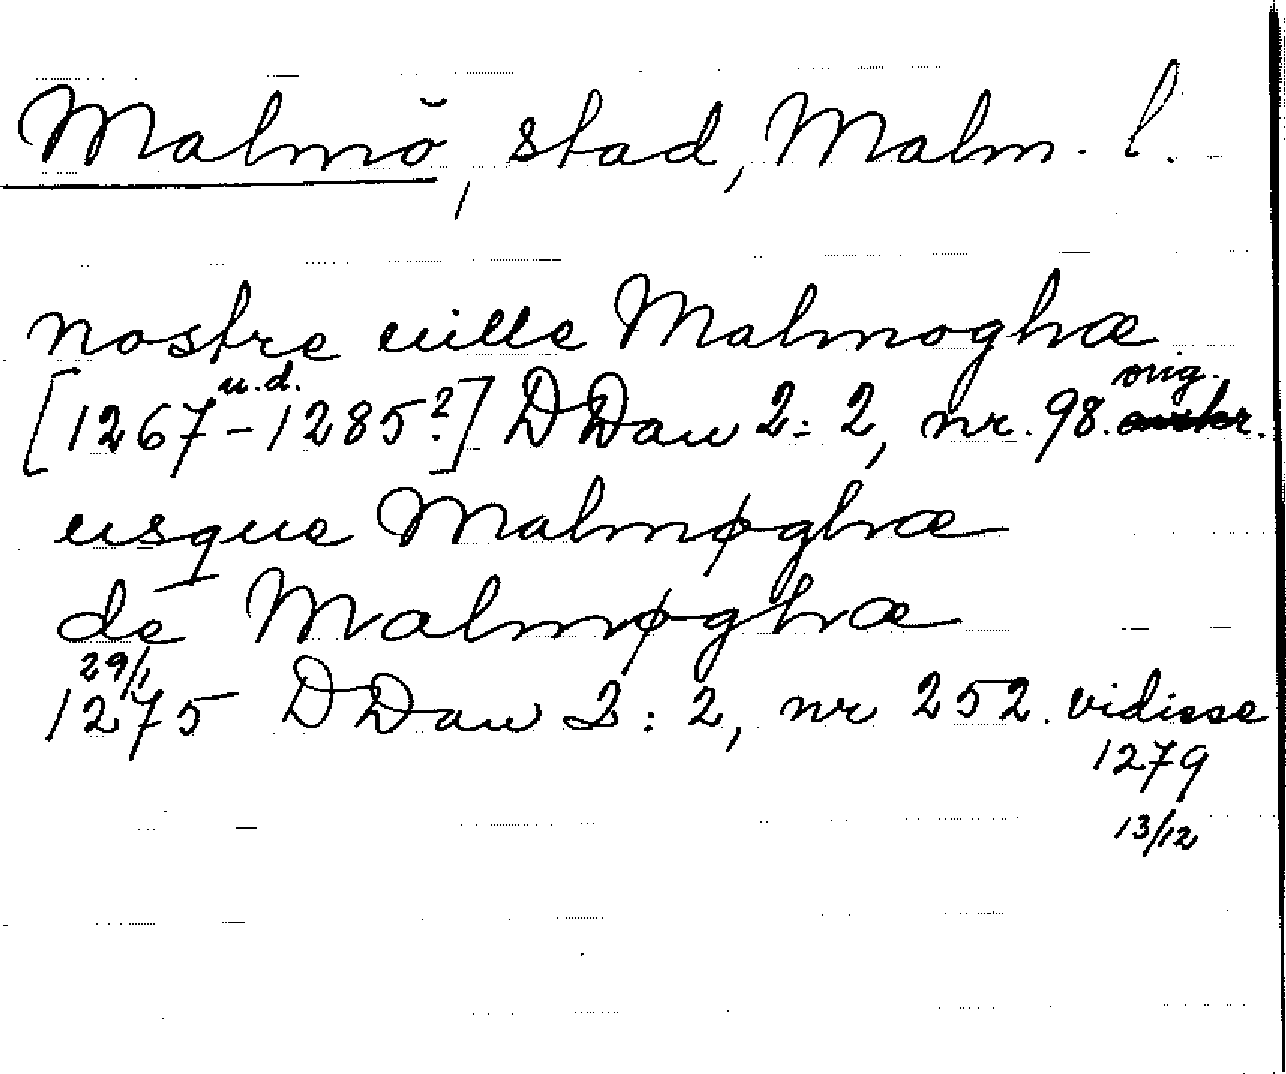 Malmö, stad, Malm. l.
nostre uille Malmoghæ
u.d. orig.
[1267-1285?] DDan 2:2, nr. 98.
usque Malmøghæ
de Malmøghæ
29/1
1275 DDan 2:2, nr 252. vidisse
1279
13/12